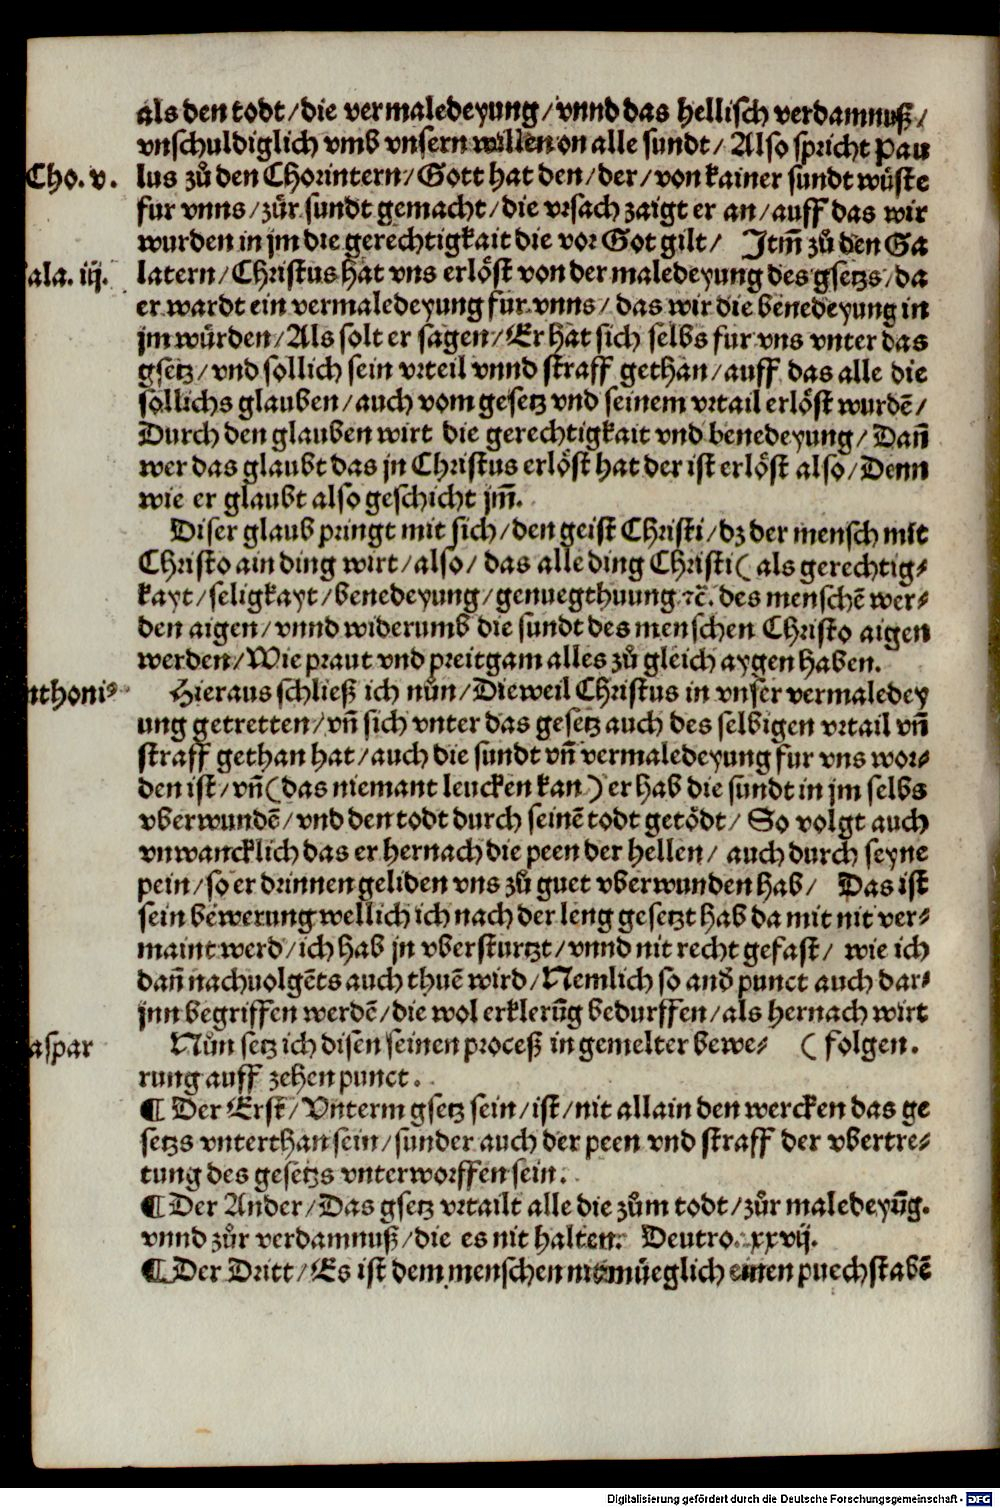 als den todt/die vermaledeyung/vnnd das hellisch verdamnuß/
vnschuldiglich vmb vnsern willen on alle sundt/ Also spricht Pau
Cho. v. lus zů den Chorintern/Gott hat den/der/von kainer sundt wůste
fur vnns/zůr sundt gemacht/die vrsach zaigt er an/auff das wir
wurden in jm die gerechtigkait die vor Got gilt/ Itm̃ zů den Ga
ala. iij. latern/Christus hat vns erlöst von der maledeyung des gsetzs/da
er wardt ein vermaledeyung fur vnns/ das wir die benedeyung in
jm wůrden/Als solt er sagen/Er hat sich selbs fur vns vnter das
gsetz/vnd sollich sein vrteil vnnd straff gethan/auff das alle die
söllichs glauben/auch vom gesetz vnd seinem vrtail erlöst wurdẽ/
Durch den glauben wirt die gerechtigkait vnd benedeyung/Dañ
wer das glaubt das jn Christus erlöst hat der ist erlöst also/Denn
wie er glaubt also geschicht jm̃.
Diser glaub pringt mit sich/den geist Christi/dz der mensch mit
Christo ain ding wirt/also/ das alle ding Christi( als gerechtig⸗
kayt/seligkayt/benedeyung/genuegthuung ꝛc̃. des menschẽ wer⸗
den aigen/vnnd widerumb die sundt des menschen Christo aigen
werden/Wie praut vnd preitgam alles zů gleich aygen haben.
nthoni⸗ Hieraus schließ ich nůn/Dieweil Christus in vnser vermaledey
ung getretten/vñ sich vnter das gesetz auch des selbigen vrtail vñ
straff gethan hat/auch die sundt vñ vermaledeyung fur vns wor⸗
den ist/vñ(das niemant leucken kan) er hab die sundt in jm selbs
vberwundẽ/vnd den todt durch seinẽ todt getödt/ So volgt auch
vnwancklich das er hernach die peen der hellen/ auch durch seyne
pein/so er drinnen geliden vns zů guet vberwunden hab/ Das ist
sein bewerung wellich ich nach der leng gesetzt hab da mit nit ver⸗
maint werd/ich hab jn vbersturtzt/vnnd nit recht gefast/ wie ich
dañ nachuolgẽts auch thuẽ wird/Nemlich so and̃ punct auch dar⸗
jnn begriffen werdẽ/die wol erklerũg bedurffen/als hernach wirt
aspar Nůn setz ich disen seinen proceß in gemelter bewe⸗ ( folgen.
rung auff zehen punct.
¶ Der Erst/Vnterm gsetz sein/ist/nit allain den wercken das ge
setzs vnterthan sein/sunder auch der peen vnd straff der vbertre⸗
tung des gesetzs vnterworffen sein.
¶ Der Ander/Das gsetz vrtailt alle die zům todt/zůr maledeyũg.
vnnd zůr verdamnuß/die es nit halten. Deutro. xxvij.
¶ Der Dritt/Es ist dem menschen můeglich einen puechstabẽ
Digitalisierung gefördert durch die Deutsche Forschungsgemeinschaft - DFG